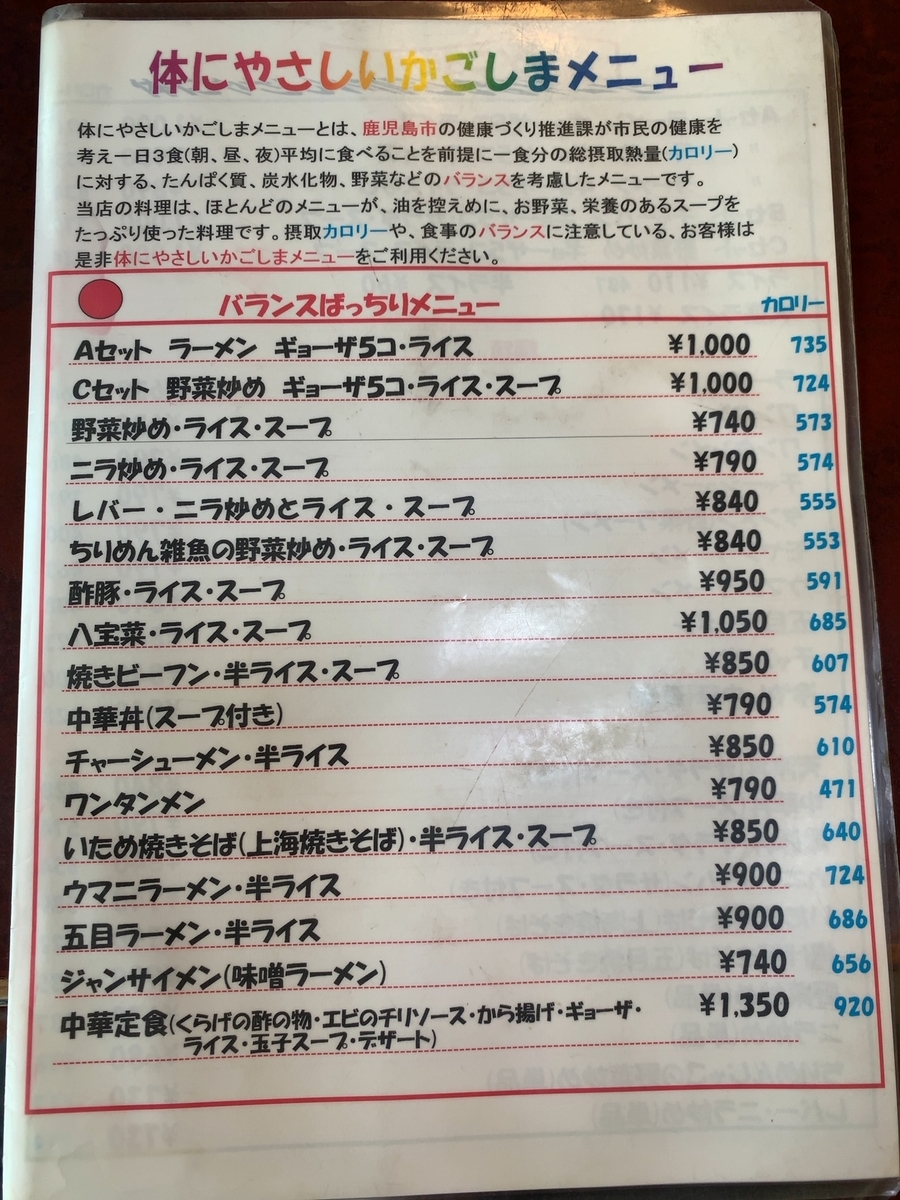 体にやさしいかごしまメニュー
体にやさしいかごしまメニューとは、鹿児島市の健康づくり推進課が市民の健康を
考え一日3食(朝、昼、夜)平均に食べることを前提に一食分の総摂取熱量(カロリー)
に対する、たんぱく質、炭水化物、野菜などのバランスを考慮したメニューです。
当店の料理は、ほとんどのメニューが、油を控えめに、お野菜、栄養のあるスープを
たっぷり使った料理です。摂取カロリーや、食事のバランスに注意している、お客様は
是非体にやさしいかごしまメニューをご利用ください。
バランスばっちりメニュー カロリー
Aセット ラーメン ギョーザ5コ・ライス ¥1,000 735
Cセット 野菜炒め ギョーザ5コ・ライス・スープ ¥1,000 724
野菜炒め・ライス・スープ ¥740 573
ニラ炒め・ライス・スープ ¥790 574
レバー・ニラ炒めとライス・スープ ¥840 555
ちりめん雑魚の野菜炒め・ライス・スープ ¥840 553
酢豚・ライス・スープ ¥950 591
八宝菜・ライス・スープ ¥1,050 685
焼きビーフン・半ライス・スープ ¥850 607
中華丼(スープ付き) ¥790 574
チャーシューメン・半ライス ¥850 610
ワンタンメン ¥790 471
いため焼きそば(上海焼きそば)・半ライス・スープ ¥850 640
ウマニラーメン・半ライス ¥900 724
五目ラーメン・半ライス ¥900 686
ジャンサイメン(味噌ラーメン) ¥740 656
中華定食(くらげの酢の物・エビのチリソース・から揚げ・ギョーザ・ ¥1,350 920
ライス・玉子スープ・デザート)